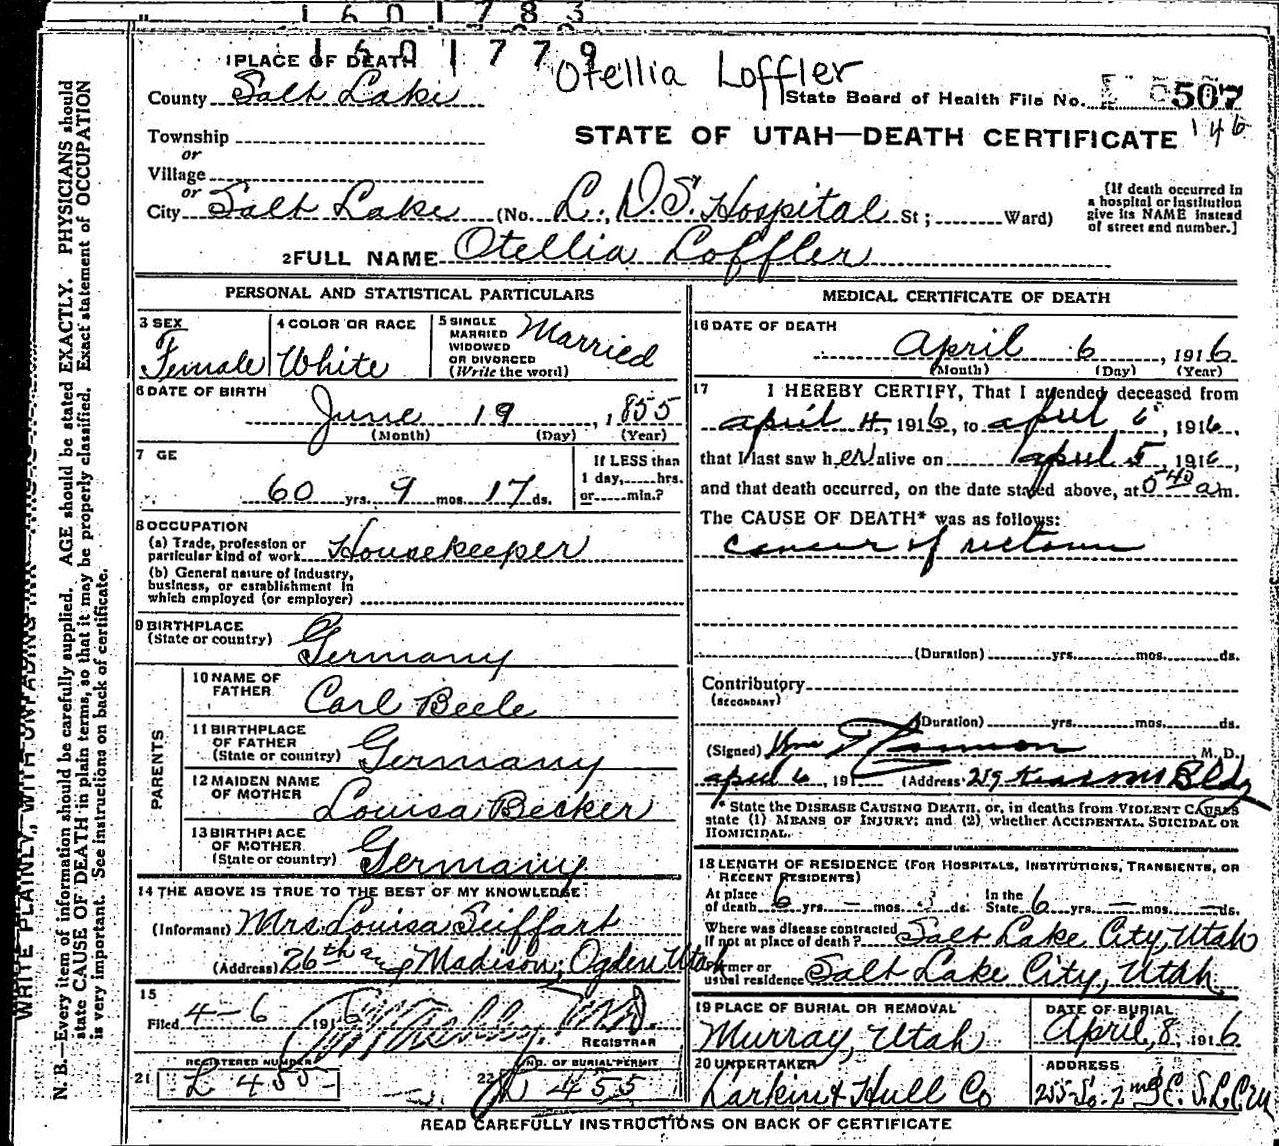 1601783
1601779
Otellia Loffler
1 PLACE OF DEATH
County Salt Lake
State Board of Health File No. 507
146
Township
or
STATE OF UTAH—DEATH CERTIFICATE
Village
or
City Salt Lake (No. L. D. S. Hospital St; Ward)
[If death occurred in a hospital or institution give its NAME instead of street and number.]
2 FULL NAME Otellia Loffler
PERSONAL AND STATISTICAL PARTICULARS
3 SEX
Female
4 COLOR OR RACE
White
5 SINGLE MARRIED WIDOWED OR DIVORCED (Write the word)
Married
6 DATE OF BIRTH
June 19, 1855
(Month) (Day) (Year)
7 GE
60 yrs. 9 mos. 17 ds.
If LESS than 1 day, hrs. or min.?
8 OCCUPATION
(a) Trade, profession or particular kind of work Housekeeper
(b) General nature of industry, business, or establishment in which employed (or employer)
9 BIRTHPLACE
(State or country) Germany
PARENTS
10 NAME OF FATHER Carl Beele
11 BIRTHPLACE OF FATHER (State or country) Germany
12 MAIDEN NAME OF MOTHER Louisa Becker
13 BIRTHPLACE OF MOTHER (State or country) Germany
14 THE ABOVE IS TRUE TO THE BEST OF MY KNOWLEDGE
(Informant) Mrs. Louisa Seiffart
(Address) 26th and Madison, Ogden Utah
15
Filed 4-6 1916 M.D.
REGISTRAR
REGISTERED NUMBER
NO. OF BURIAL PERMIT
21 L 455
22 L 455
MEDICAL CERTIFICATE OF DEATH
16 DATE OF DEATH
April 6, 1916
(Month) (Day) (Year)
17 I HEREBY CERTIFY, That I attended deceased from
april 4, 1916, to april 6, 1916,
that I last saw her alive on april 5, 1916,
and that death occurred, on the date stated above, at 5 40 a m.
The CAUSE OF DEATH* was as follows:
cancer of rectum
(Duration) yrs. mos. ds.
Contributory
(SECONDARY)
(Duration) yrs. mos. ds.
(Signed) M. D.
april 6, 191 (Address) 219 Kearns Bldg
* State the DISEASE CAUSING DEATH, or, in deaths from VIOLENT CAUSES
state (1) MEANS OF INJURY; and (2), whether ACCIDENTAL, SUICIDAL OR
HOMICIDAL.
18 LENGTH OF RESIDENCE (FOR HOSPITALS, INSTITUTIONS, TRANSIENTS, OR
RECENT RESIDENTS)
At place of death 6 yrs. – mos. ds. In the State 6 yrs. – mos. – ds.
Where was disease contracted
if not at place of death? Salt Lake City, Utah
Former or
usual residence Salt Lake City, Utah
19 PLACE OF BURIAL OR REMOVAL
Murray, Utah
DATE OF BURIAL
April, 8, 1916
20 UNDERTAKER
Larkin & Hull Co
ADDRESS
READ CAREFULLY INSTRUCTIONS ON BACK OF CERTIFICATE
WRITE PLAINLY, WITH UNFADING INK
N. B.—Every item of information should be carefully supplied. AGE should be stated EXACTLY. PHYSICIANS should
state CAUSE OF DEATH in plain terms, so that it may be properly classified. Exact statement of OCCUPATION
is very important. See instructions on back of certificate.